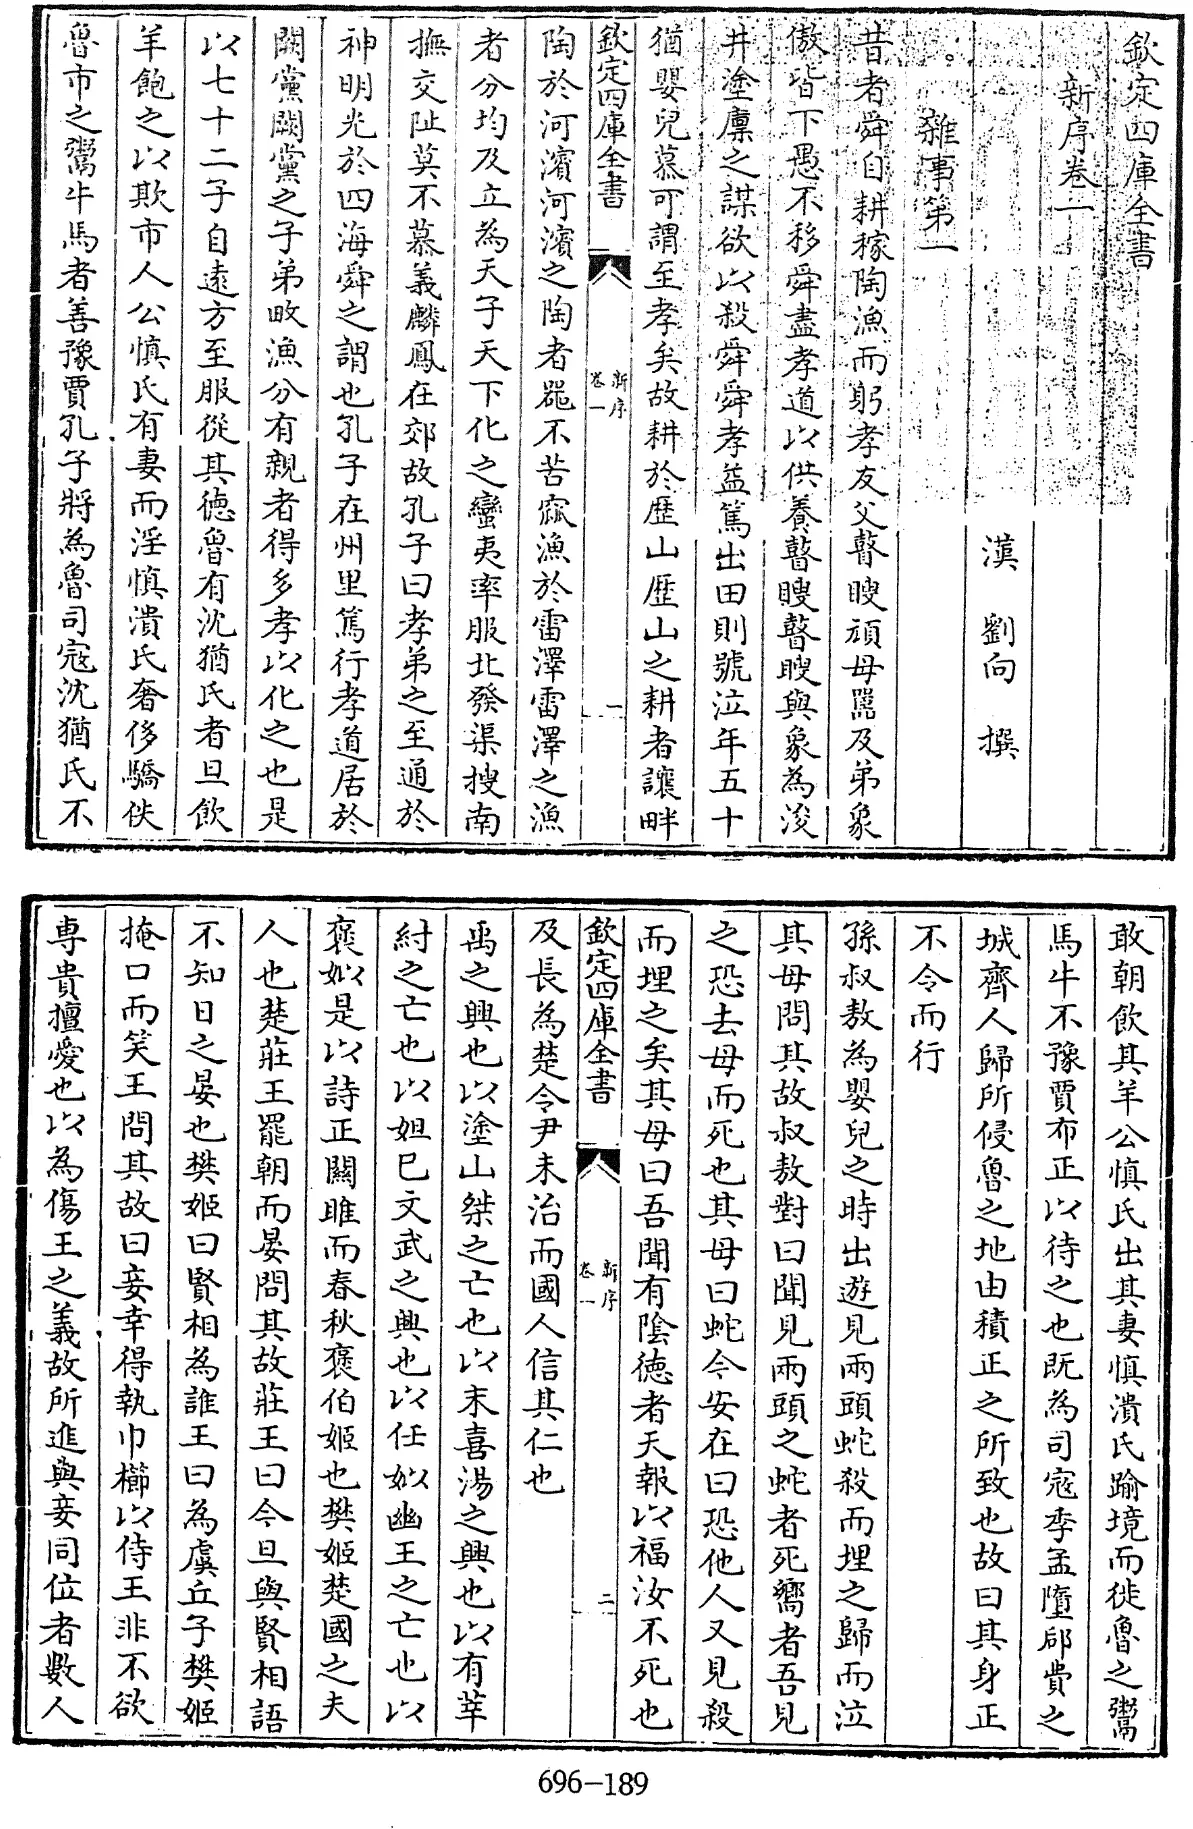 欽定四庫全書
新序卷一
漢　劉向　撰
雜事第一
昔者舜自耕稼陶漁而躬孝友父瞽瞍頑母嚚及弟象
傲皆下愚不移舜盡孝道以供養瞽瞍瞽瞍與象為浚
井塗廩之謀欲以殺舜舜孝益篤出田則號泣年五十
猶嬰兒慕可謂至孝矣故耕於歷山歷山之耕者讓畔
欽定四庫全書
新序
卷一
一
陶於河濱河濱之陶者器不苦窳漁於雷澤雷澤之漁
者分均及立為天子天下化之蠻夷率服北發渠搜南
撫交阯莫不慕義麟鳳在郊故孔子曰孝弟之至通於
神明光於四海舜之謂也孔子在州里篤行孝道居於
闕黨闕黨之子弟畋漁分有親者得多孝以化之也是
以七十二子自遠方至服從其德魯有沈猶氏者旦飲
羊飽之以欺市人公慎氏有妻而淫慎潰氏奢侈驕佚
魯市之鬻牛馬者善豫賈孔子將為魯司寇沈猶氏不
敢朝飲其羊公慎氏出其妻慎潰氏踰境而徙魯之鬻
馬牛不豫賈布正以待之也既為司寇季孟墮郈費之
城齊人歸所侵魯之地由積正之所致也故曰其身正
不令而行
孫叔敖為嬰兒之時出遊見兩頭蛇殺而埋之歸而泣
其母問其故叔敖對曰聞見兩頭之蛇者死嚮者吾見
之恐去母而死也其母曰蛇今安在曰恐他人又見殺
而埋之矣其母曰吾聞有陰德者天報以福汝不死也
欽定四庫全書
新序
卷一
二
及長為楚令尹未治而國人信其仁也
禹之興也以塗山桀之亡也以末喜湯之興也以有莘
紂之亡也以妲己文武之興也以任姒幽王之亡也以
褒姒是以詩正關雎而春秋褒伯姬也樊姬楚國之夫
人也楚莊王罷朝而晏問其故莊王曰今旦與賢相語
不知日之晏也樊姬曰賢相為誰王曰為虞丘子樊姬
掩口而笑王問其故曰妾幸得執巾櫛以侍王非不欲
專貴擅愛也以為傷王之義故所進與妾同位者數人
696-189